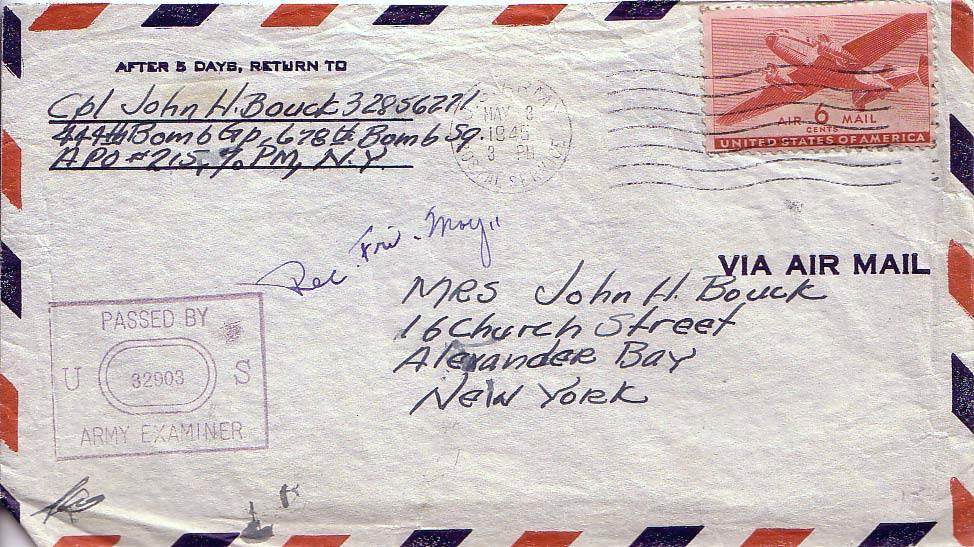 AFTER 5 DAYS, RETURN TO
Cpl John H. Bouck 32856271
444th Bomb Gp, 678th Bomb Sq.
APO #215, % PM, N.Y.
MAY 3
1945
3 PM
AIR 6 MAIL
CENTS
UNITED STATES OF AMERICA
Rec. Fri. May 11
VIA AIR MAIL
MRS John H. Bouck
16 Church Street
Alexander Bay
New York
PASSED BY
U 32903 S
ARMY EXAMINER